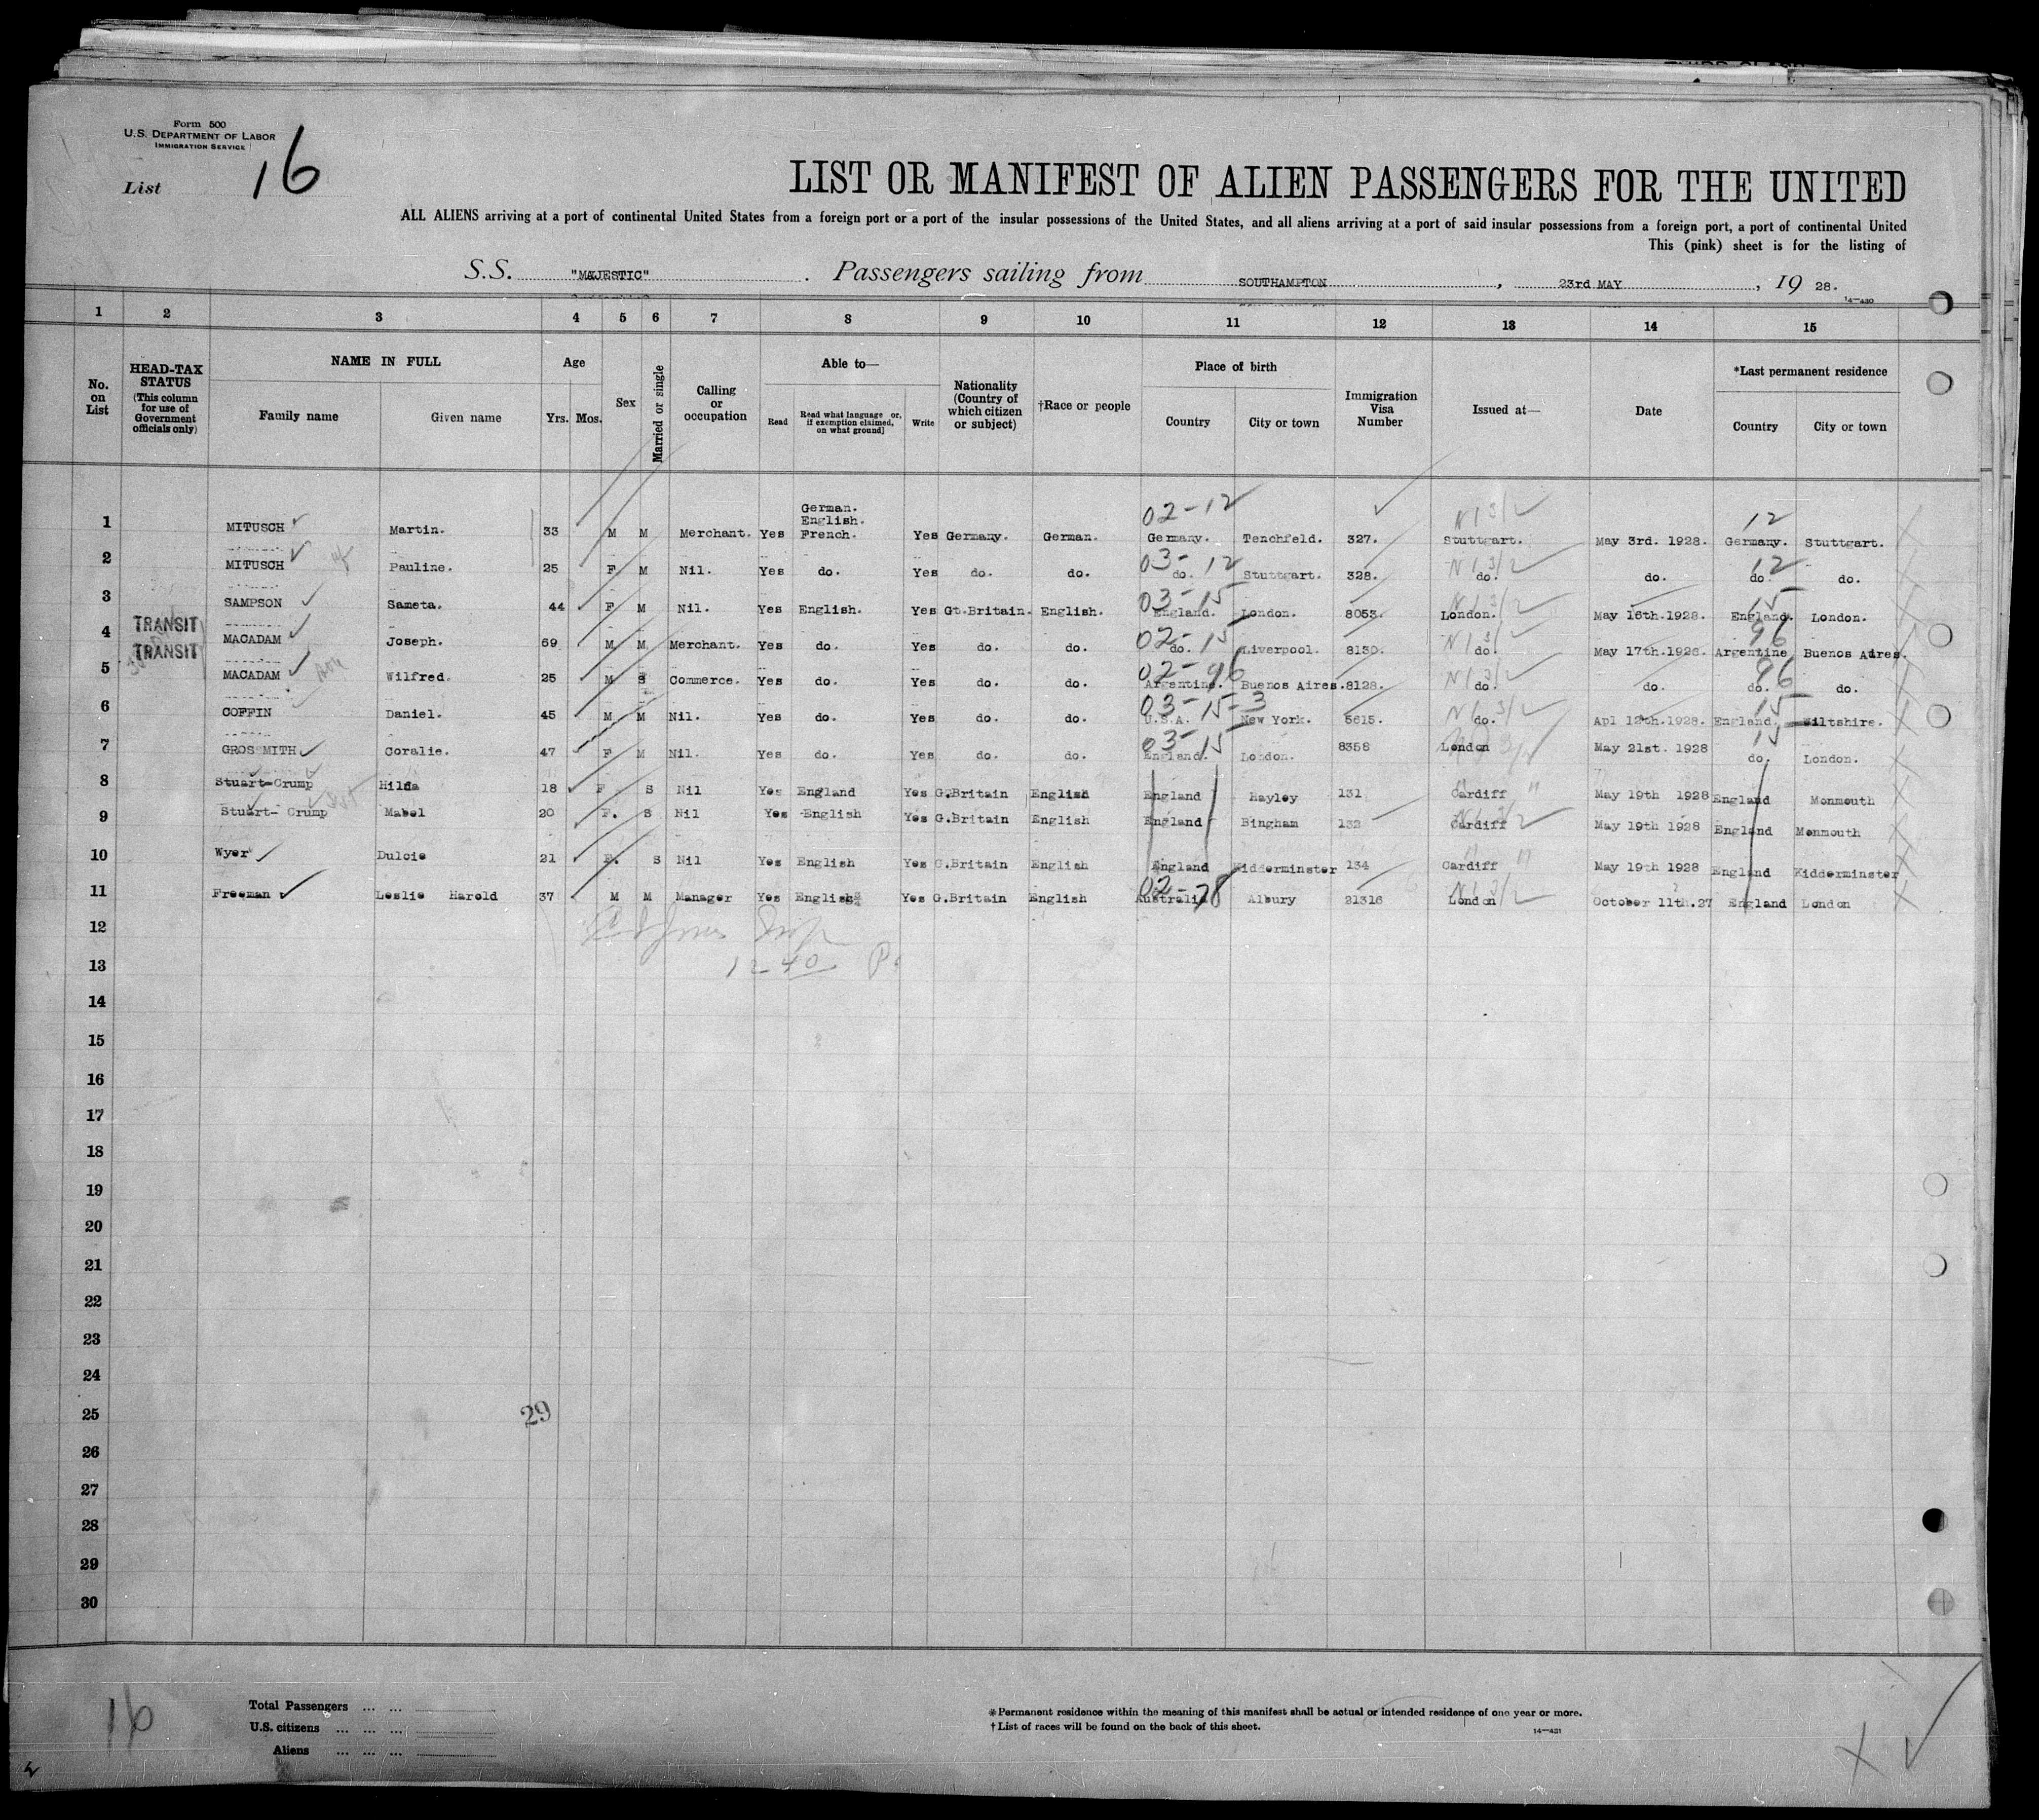 Form 500
U.S. DEPARTMENT OF LABOR
IMMIGRATION SERVICE
List 16
LIST OR MANIFEST OF ALIEN PASSENGERS FOR THE UNITED
ALL ALIENS arriving at a port of continental United States from a foreign port or a port of the insular possessions of the United States, and all aliens arriving at a port of said insular possessions from a foreign port, a port of continental United
This (pink) sheet is for the listing of
S.S. "MAJESTIC". Passengers sailing from SOUTHAMPTON, 23rd MAY, 19 28.
14-430
1 2 3 4 5 6 7 8 9 10 11 12 13 14 15
No. on List
HEAD-TAX STATUS (This column for use of Government officials only)
NAME IN FULL
Family name Given name
Age
Yrs. Mos.
Sex
Married or single
Calling or occupation
Able to—
Read
Read what language or, if exemption claimed, on what ground]
Write
Nationality (Country of which citizen or subject)
†Race or people
Place of birth
Country City or town
Immigration Visa Number
Issued at—
Date
*Last permanent residence
Country City or town
02-12 N 1 3/2 12
1 MITUSCH Martin. 33 M M Merchant. Yes German. English. French. Yes Germany. German. Germany. Tenchfeld. 327. Stuttgart. May 3rd. 1928. Germany. Stuttgart.
03-12 N 1 3/2 12
2 MITUSCH Pauline. 25 F M Nil. Yes do. Yes do. do. do. Stuttgart. 328. do. do. do. do.
03-15 N 1 3/2 15
3 SAMPSON Sameta. 44 F M Nil. Yes English. Yes Gt.Britain. English. England. London. 8053. London. May 16th.1928. England. London.
02-15 N 1 3/2 96
4 TRANSIT MACADAM Joseph. 59 M M Merchant. Yes do. Yes do. do. do. Liverpool. 8130. do. May 17th.1928. Argentine Buenos Aires.
02-96 N 1 3/2 96
5 TRANSIT MACADAM Wilfred. 25 M S Commerce. Yes do. Yes do. do. Argentine. Buenos Aires. 8128. do. do. do. do.
03-15-3 N 1 3/2 15
6 COFFIN Daniel. 45 M M Nil. Yes do. Yes do. do. U.S.A. New York. 5615. do. Apl 12th.1928. England. Wiltshire.
03-15 15
7 GROSSMITH Coralie. 47 F M Nil. Yes do. Yes do. do. England. London. 8358 London May 21st. 1928 do. London.
8 Stuart-Crump Hilda 18 F S Nil Yes England Yes G.Britain English England Hayley 131 Cardiff May 19th 1928 England Monmouth
9 Stuart- Crump Mabel 20 F. S Nil Yes English Yes G.Britain English England Bingham 132 Cardiff May 19th 1928 England Monmouth
10 Wyer Dulcie 21 F. S Nil Yes English Yes G.Britain English England Kidderminster 134 Cardiff May 19th 1928 England Kidderminster
02-78 N 1 3/2
11 Freeman Leslie Harold 37 M M Manager Yes English Yes G.Britain English Australia Albury 21316 London October 11th.27 England London
12
1240 P.
13
14
15
16
17
18
19
20
21
22
23
24
25 29
26
27
28
29
30
16
Total Passengers ... ...
U.S. citizens ... ... ...
Aliens ... ... ...
*Permanent residence within the meaning of this manifest shall be actual or intended residence of one year or more.
†List of races will be found on the back of this sheet.
14-431